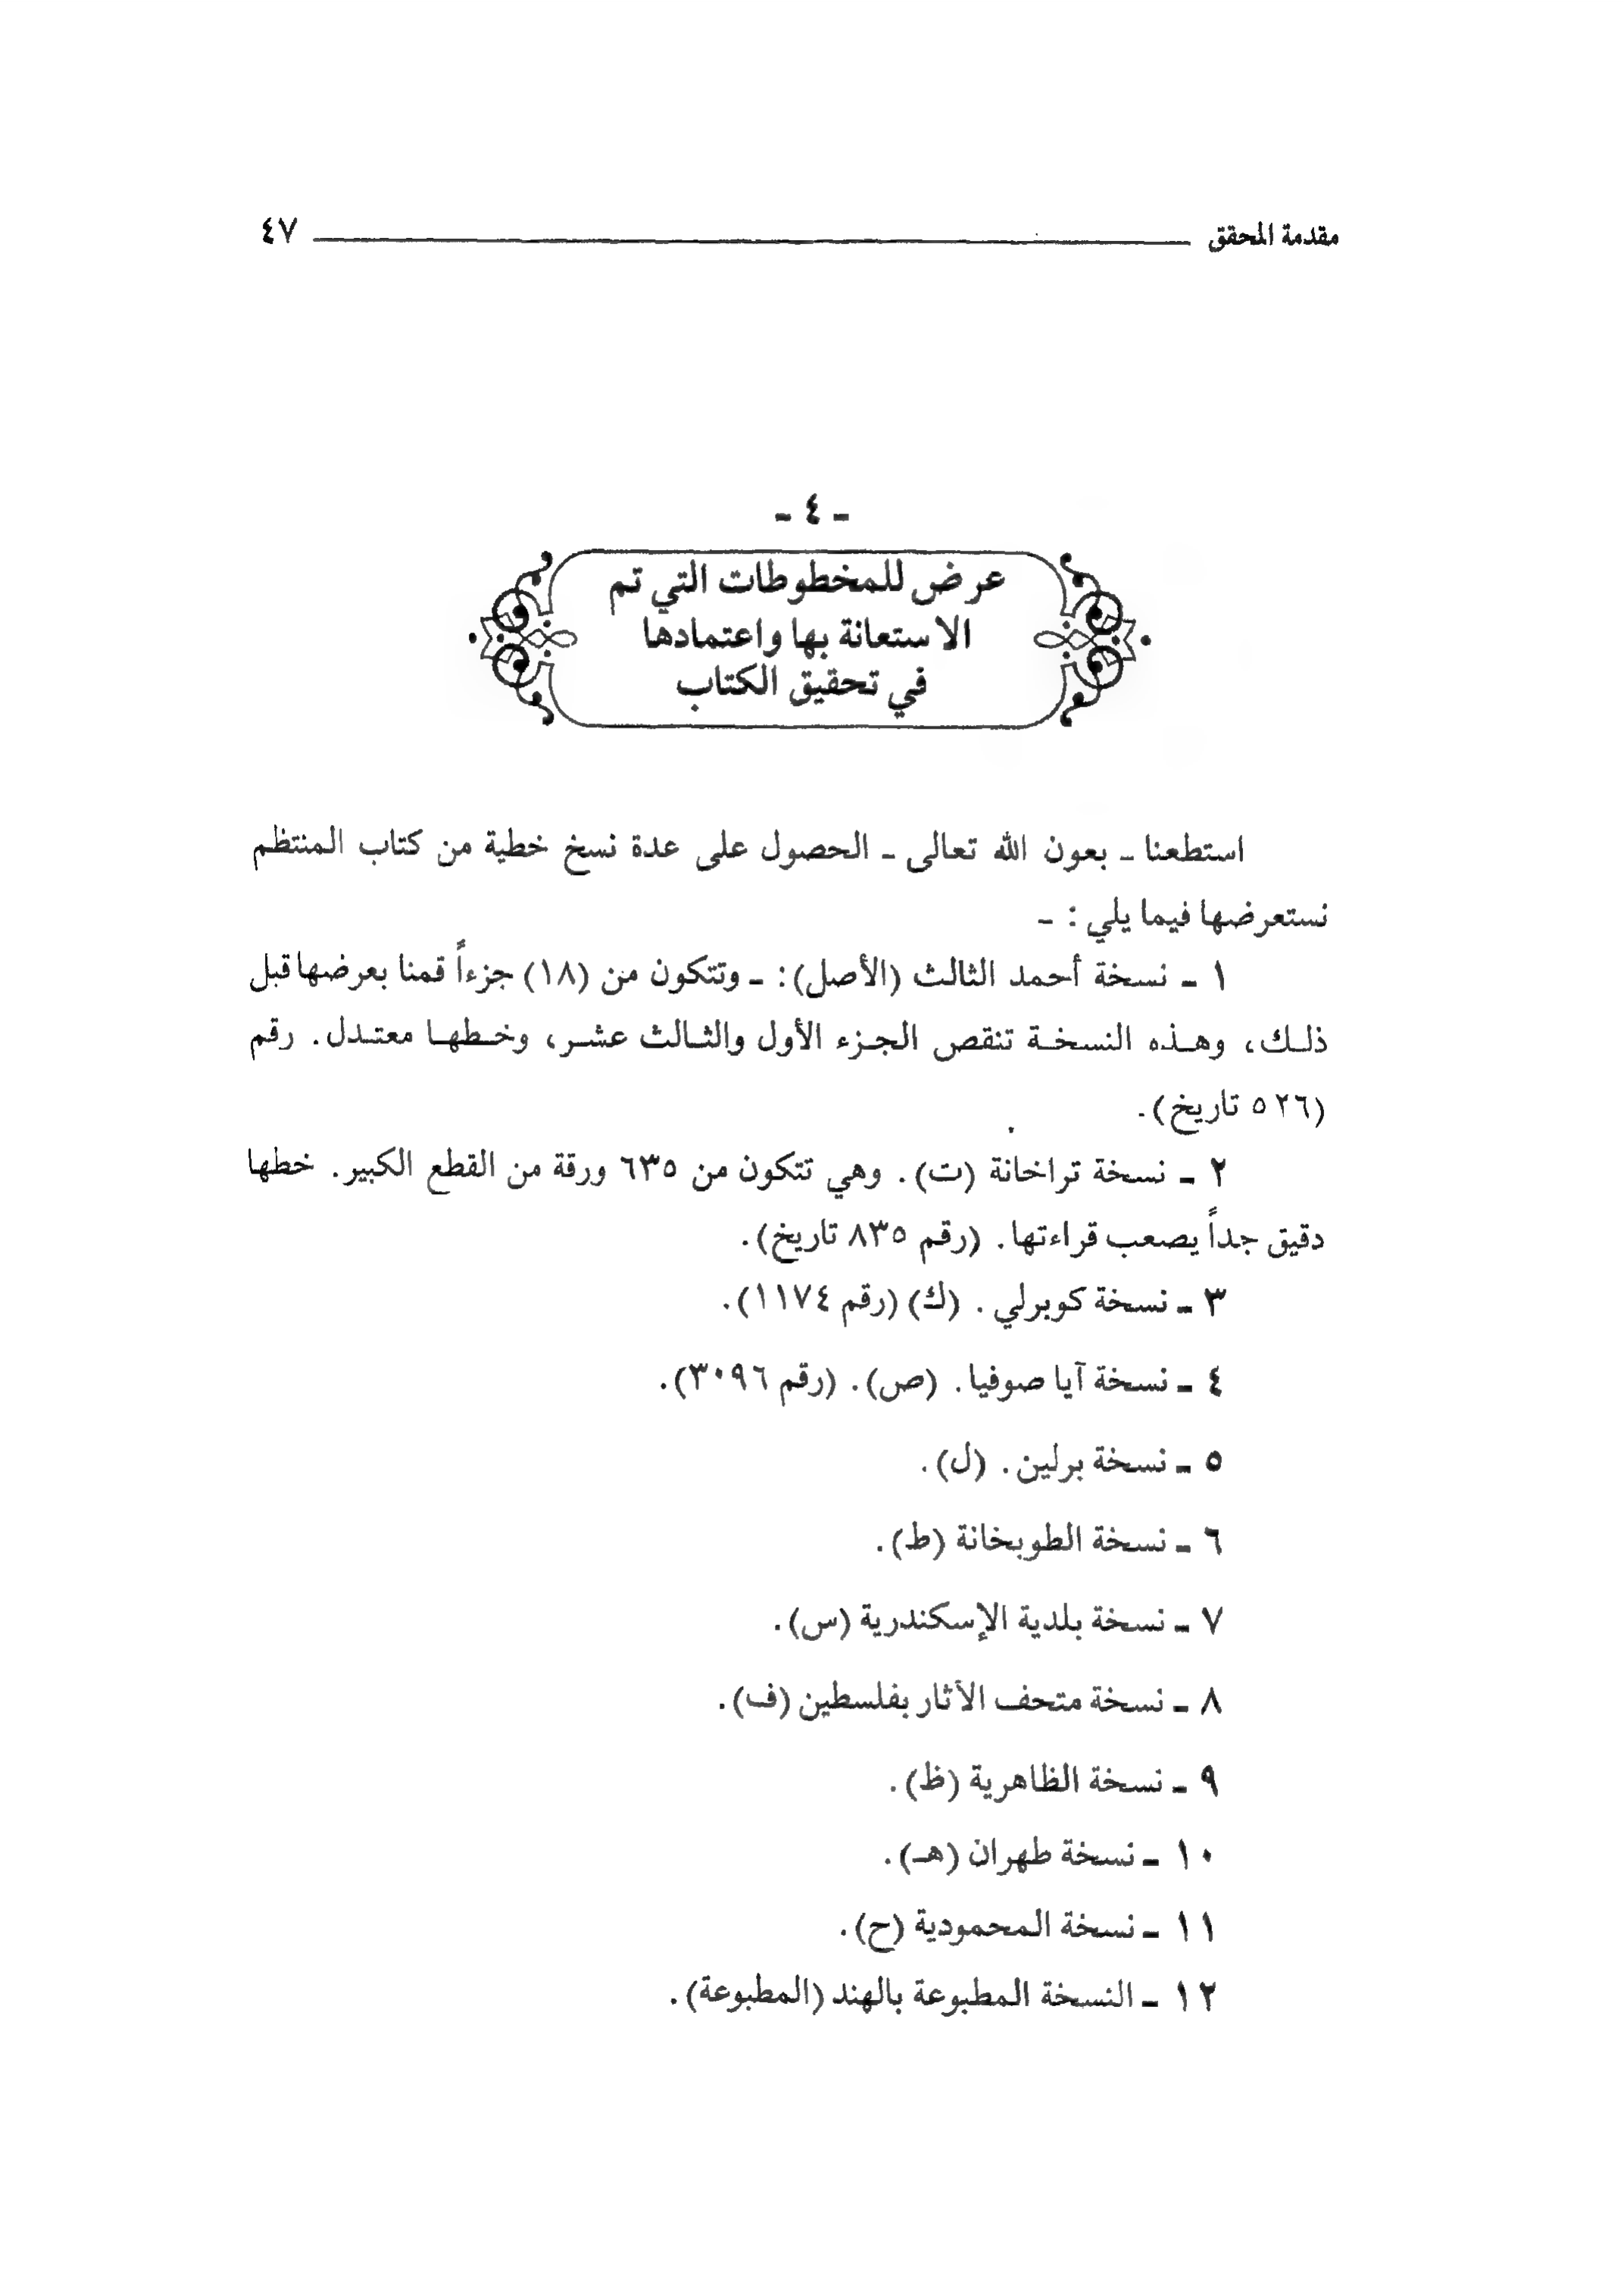 مقدمة المحقق ٤٧
- ٤ -
عرض للمخطوطات التي تم
الاستعانة بها واعتمادها
في تحقيق الكتاب
استطعنا - بعون الله تعالى - الحصول على عدة نسخ خطية من كتاب المنتظم
نستعرضها فيما يلي : -
١ - نسخة أحمد الثالث (الأصل): - وتتكون من (١٨) جزءاً قمنا بعرضها قبل
ذلك، وهذه النسخة تنقص الجزء الأول والثالث عشر، وخطها معتدل. رقم
(٥٢٦ تاريخ).
٢ - نسخة تراخانة (ت). وهي تتكون من ٦٣٥ ورقة من القطع الكبير. خطها
دقيق جداً يصعب قراءتها. (رقم ٨٣٥ تاريخ).
٣ - نسخة كوبرلي. (ك) (رقم ١١٧٤).
٤ - نسخة آيا صوفيا. (ص). (رقم ٣٠٩٦).
٥ - نسخة برلين. (ل).
٦ - نسخة الطوبخانة (ط).
٧ - نسخة بلدية الإسكندرية (س).
٨ - نسخة متحف الأثار بفلسطين (ف).
٩ - نسخة الظاهرية (ظ).
١٠ - نسخة طهران (هـ).
١١ - نسخة المحمودية (ح).
١٢ - النسخة المطبوعة بالهند (المطبوعة).